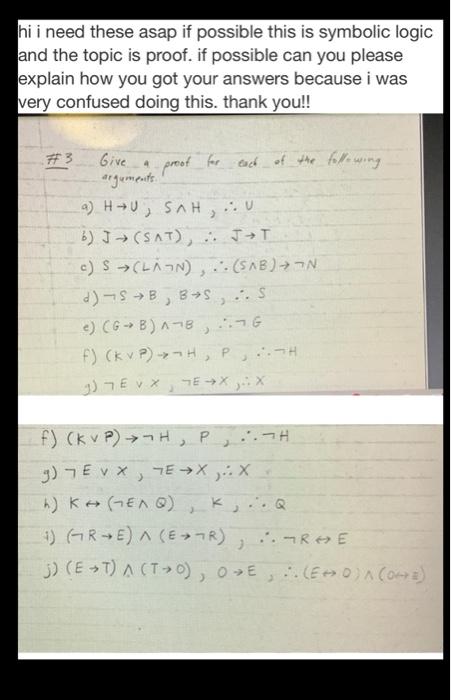 hi i need these asap if possible this is symbolic logic
and the topic is proof. if possible can you please
explain how you got your answers because i was
very confused doing this. thank you!!
#3 Give a proof for each of the following
arguments.
a) H→U, S∧H, ∴ U
b) J→(S∧T), ∴ J→T
c) S→(L∧¬N), ∴(S∧B)→¬N
d) ¬S→B, B→S, ∴ S
e) (G→B)∧¬B, ∴¬G
f) (K∨P)→¬H, P, ∴¬H
g) ¬E∨X, ¬E→X, ∴ X
f) (K∨P)→¬H, P, ∴¬H
g) ¬E∨X, ¬E→X, ∴ X
h) K↔(¬E∧Q), K, ∴ Q
i) (¬R→E)∧(E→¬R), ∴ ¬R↔E
j) (E→T)∧(T→O), O→E, ∴(E↔O)∧(O↔E)